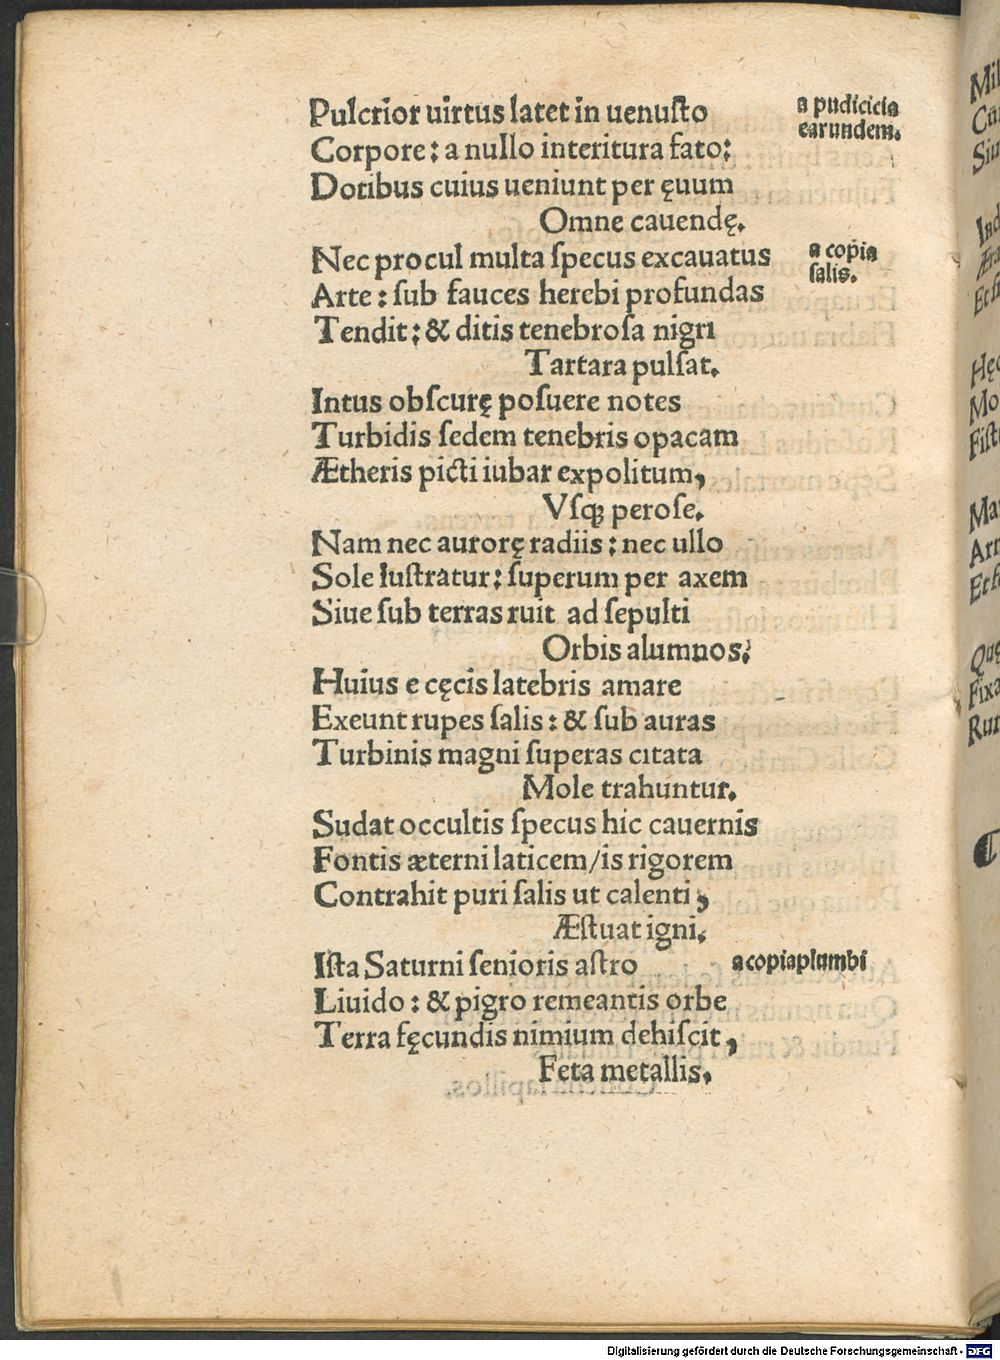 Pulcrior uirtus latet in uenuſto
a pudicicia
earundem.
Corpore: a nullo interitura fato:
Dotibus cuius ueniunt per ęuum
Omne cauendę.
Nec procul multa ſpecus excauatus
a copia
ſalis.
Arte: ſub fauces herebi profundas
Tendit: & ditis tenebroſa nigri
Tartara pulſat.
Intus obſcurę poſuere notes
Turbidis ſedem tenebris opacam
Ætheris picti iubar expolitum,
Vſqꝫ peroſe.
Nam nec aurorę radiis: nec ullo
Sole luſtratur: ſuperum per axem
Siue ſub terras ruit ad ſepulti
Orbis alumnos:
Huius e cęcis latebris amare
Exeunt rupes ſalis: & ſub auras
Turbinis magni ſuperas citata
Mole trahuntur.
Sudat occultis ſpecus hic cauernis
Fontis æterni laticem/is rigorem
Contrahit puri ſalis ut calenti,
Æſtuat igni.
Iſta Saturni ſenioris aſtro
a copia plumbi
Liuido: & pigro remeantis orbe
Terra fęcundis nimium dehiſcit,
Feta metallis.
Mil
Siu
Ind
Et ſi
Hęc
Mo
Fiſt
Ma
Arr
Et ſe
Quę
Fixa
Rur
Digitalisierung gefördert durch die Deutsche Forschungsgemeinschaft - DFG